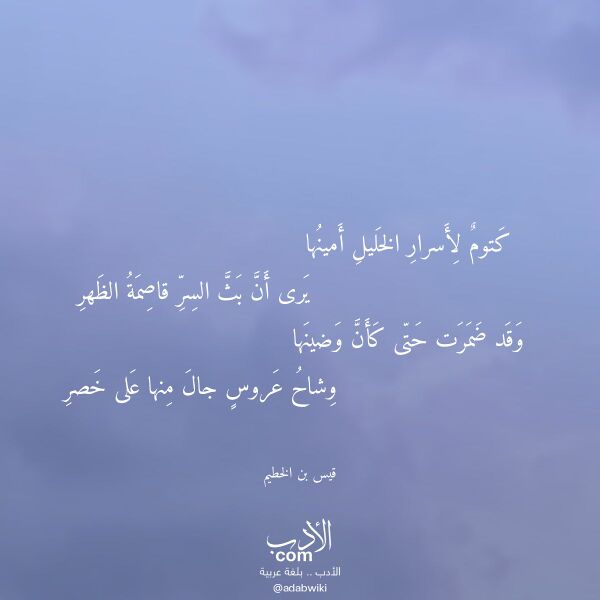 كَتومٌ لِأَسرارِ الخَليلِ أَمينُها
يَرى أَنَّ بَثَّ السِرِّ قاصِمَةُ الظَهرِ
وَقَد ضَمَرَت حَتّى كَأَنَّ وَضينَها
وِشاحُ عَروسٍ جالَ مِنها عَلى خَصرِ
قيس بن الخطيم
الأدب
com
الأدب .. بلغة عربية
@adabwiki